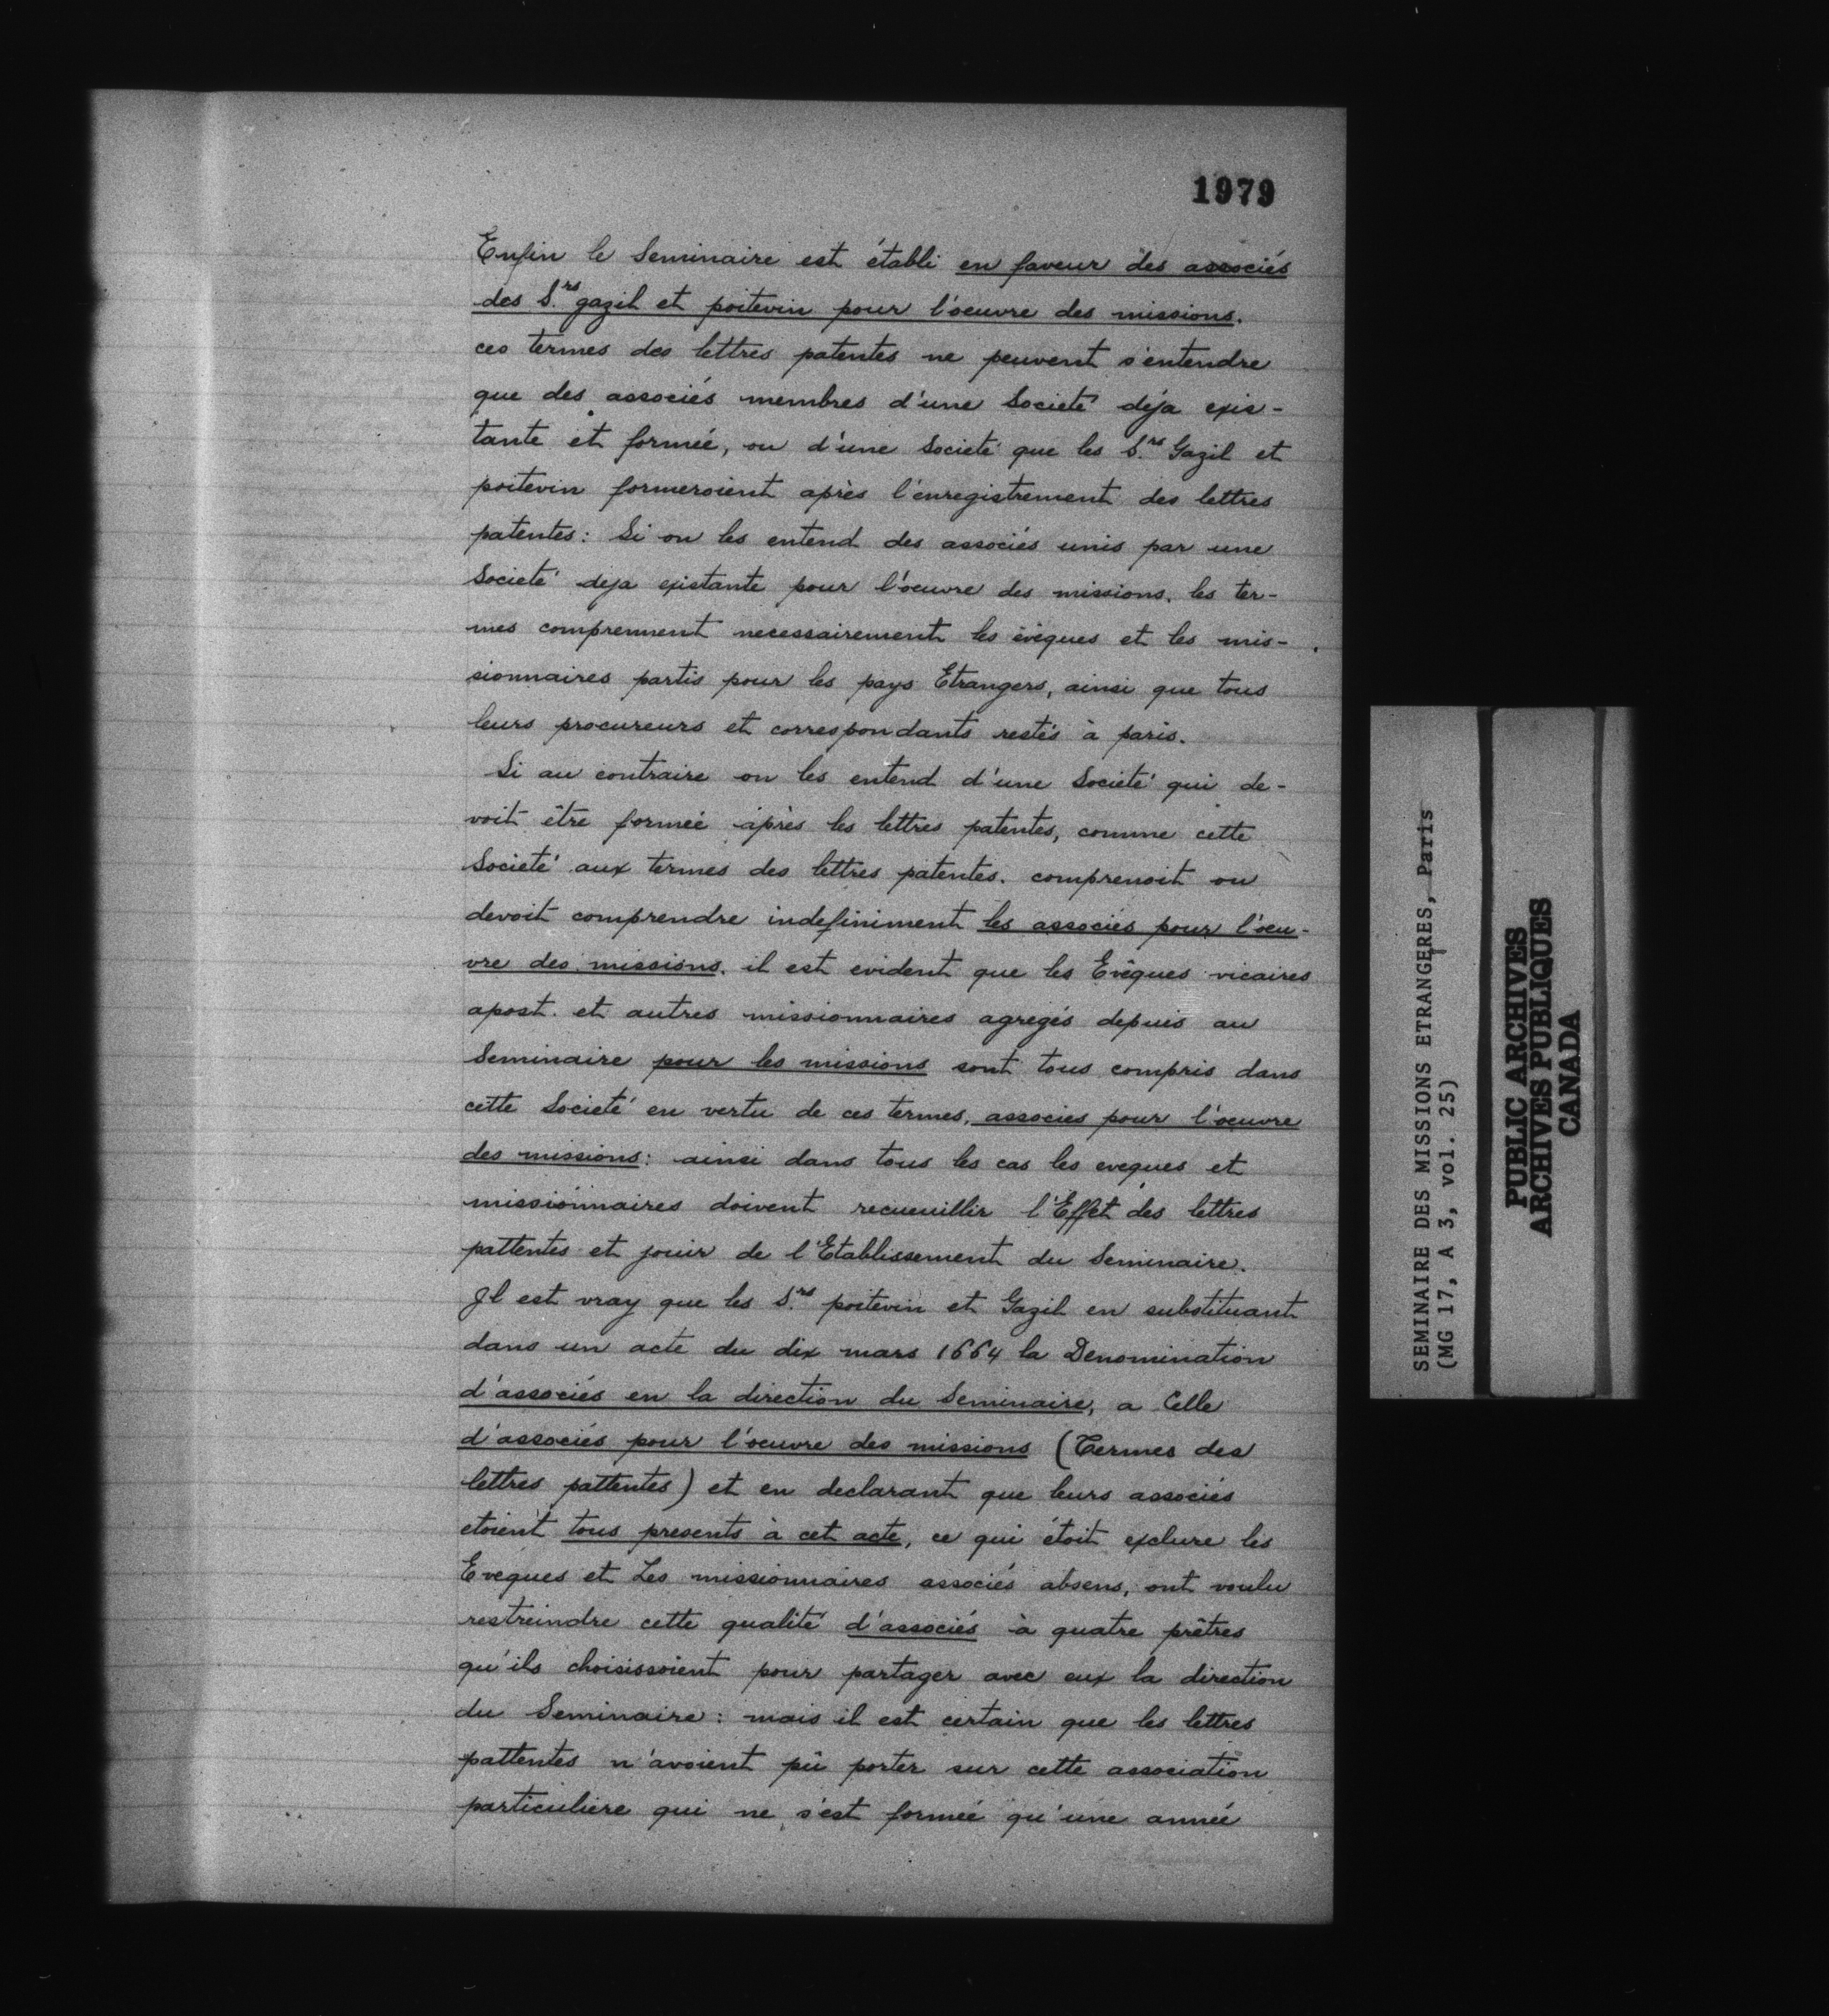 1979
Enfin le Seminaire est établi en faveur des associés
des S.rs gazil et poitevin pour l'oeuvre des missions.
ces termes des lettres patentes ne peuvent s'entendre
que des associés membres d'une Societé déja exis-
tante et formée, ou d'une Societé que les S.rs Gazil et
poitevin formeroient après l'enregistrement des lettres
patentes: Si on les entend des associés unis par une
Societé deja existante pour l'oeuvre des missions. les ter-
mes comprennent necessairement les évêques et les mis-
sionnaires partis pour les pays Etrangers, ainsi que tous
leurs procureurs et correspondants restés à paris.
Si au contraire on les entend d'une Societé qui de-
voit être formée après les lettres patentes, comme cette
Societé aux termes des lettres patentes. comprenoit ou
devoit comprendre indefiniment les associés pour l'oeu-
vre des missions. il est evident que les Evêques vicaires
apost. et autres missionnaires agregés depuis au
Seminaire pour les missions sont tous compris dans
cette Societé en vertu de ces termes, associés pour l'oeuvre
des missions: ainsi dans tous les cas les eveques et
missionnaires doivent recueuillir l'Effet des lettres
pattentes et jouir de l'Etablissement du Seminaire.
Il est vray que les S.rs poitevin et Gazil en substituant
dans un acte du dix mars 1664 la Denomination
d'associés en la direction du Seminaire, a Celle
d'associés pour l'oeuvre des missions (Termes des
lettres pattentes) et en declarant que leurs associés
etoient tous presents à cet acte, ce qui étoit exclure les
Eveques et Les missionnaires associés absens, ont voulu
restreindre cette qualité d'associés à quatre prêtres
qu'ils choisissoient pour partager avec eux la direction
du Seminaire: mais il est certain que les lettres
pattentes n'avoient pû porter sur cette association
particuliere qui ne s'est formée qu'une année
SEMINAIRE DES MISSIONS ETRANGERES, Paris
(MG 17, A 3, vol. 25)
PUBLIC ARCHIVES
ARCHIVES PUBLIQUES
CANADA